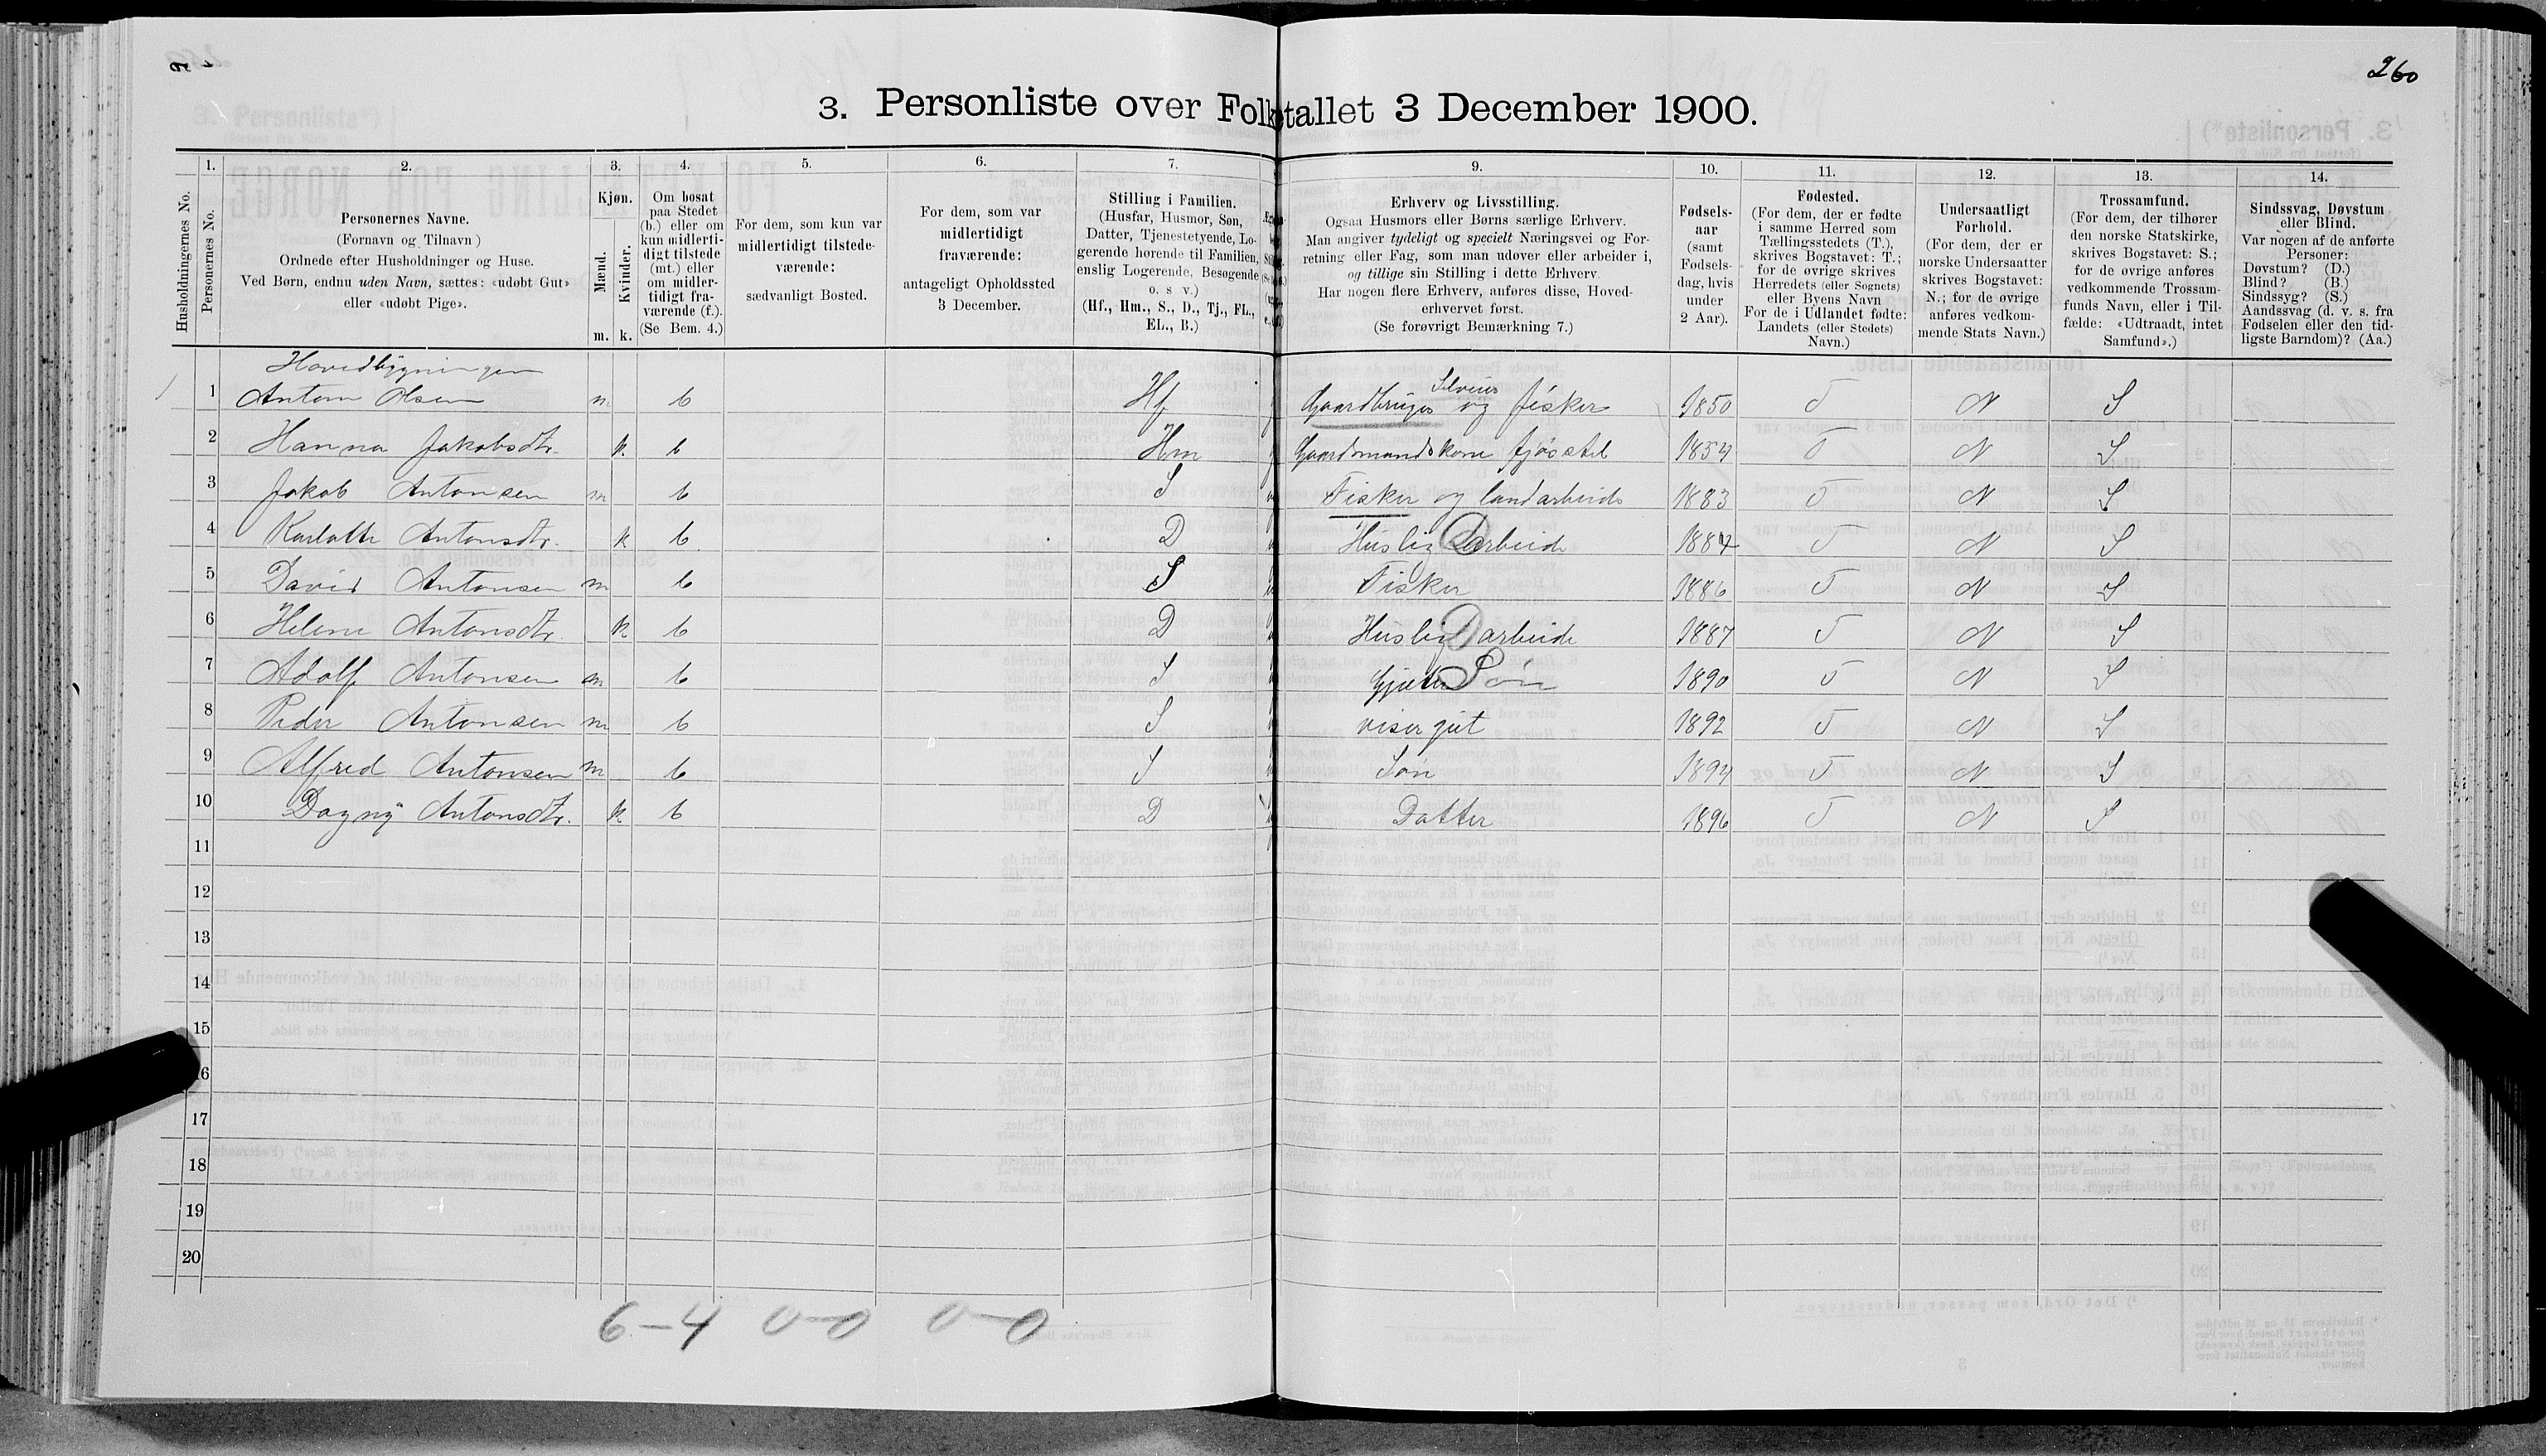 260
3. Personliste over Folketallet 3 December 1900.
Husholdningernes No.
1.
Personernes No.
2.
Personernes Navne.
(Fornavn og Tilnavn)
Ordnede efter Husholdninger og Huse.
Ved Børn, endnu uden Navn, sættes: «udøbt Gut»
eller «udøbt Pige».
3.
Kjøn.
Mænd.
Kvinder.
m. k.
4.
Om bosat
paa Stedet
(b.) eller om
kun midlerti-
digt tilstede
(mt.) eller
om midler-
tidigt fra-
værende (f.).
(Se Bem. 4.)
5.
For dem, som kun var
midlertidigt tilstede-
værende:
sædvanligt Bosted.
6.
For dem, som var
midlertidigt
fraværende:
antageligt Opholdssted
3 December.
7.
Stilling i Familien.
(Husfar, Husmor, Søn,
Datter, Tjenestetyende, Lo-
gerende hørende til Familien,
enslig Logerende, Besøgende
o. s v.)
(Hf., Hm., S., D., Tj., FL.,
EL., B.)
9.
Erhverv og Livsstilling.
Ogsaa Husmors eller Børns særlige Erhverv.
Man angiver tydeligt og specielt Næringsvei og For-
retning eller Fag, som man udøver eller arbeider i,
og tillige sin Stilling i dette Erhverv.
Har nogen flere Erhverv, anføres disse, Hoved-
erhvervet først.
(Se forøvrigt Bemærkning 7.)
10.
Fødsels-
aar
(samt
Fødsels-
dag, hvis
under
2 Aar).
11.
Fødested.
(For dem, der er fødte
i samme Herred som
Tællingsstedets (T.),
skrives Bogstavet: T.;
for de øvrige skrives
Herredets (eller Sognets)
eller Byens Navn
For de i Udlandet fødte:
Landets (eller Stedets)
Navn.)
12.
Undersaatligt
Forhold.
(For dem, der er
norske Undersaatter
skrives Bogstavet:
N.; for de øvrige
anføres vedkom-
mende Stats Navn.)
13.
Trossamfund.
(For dem, der tilhører
den norske Statskirke,
skrives Bogstavet: S.;
for de øvrige anføres
vedkommende Trossam-
funds Navn, eller i Til-
fælde: «Udtraadt, intet
Samfund».)
14.
Sindssvag, Døvstum
eller Blind.
Var nogen af de anførte
Personer:
Døvstum? (D.)
Blind? (B.)
Sindssyg? (S.)
Aandssvag (d. v. s. fra
Fødselen eller den tid-
ligste Barndom)? (Aa.)
Hovedbygningen
1 Anton Olsen m b Hf Gaardbruger Selveier og fisker 1850 T N S
2 Hanna Jakobsdtr. k b Hm Gaardmandskone fjøsstel 1854 T N S
3 Jakob Antonsen m b S Fisker og landarbeide 1883 T N S
4 Karlotte Antonsdtr. k b D Huslig arbeide D 1884 T N S
5 David Antonsen m b S Fisker 1886 T N S
6 Helene Antonsdtr. k b D Huslig arbeide D 1887 T N S
7 Adolf Antonsen m b S Gjæter Søn 1890 T N S
8 Peder Antonsen m b S visergut 1892 T N S
9 Alfred Antonsen m b S Søn 1894 T N S
10 Dagny Antonsdtr. k b D Datter 1896 T N S
11
12
13
14
15
16
17
18
19
20
6-4 0-0 0-0